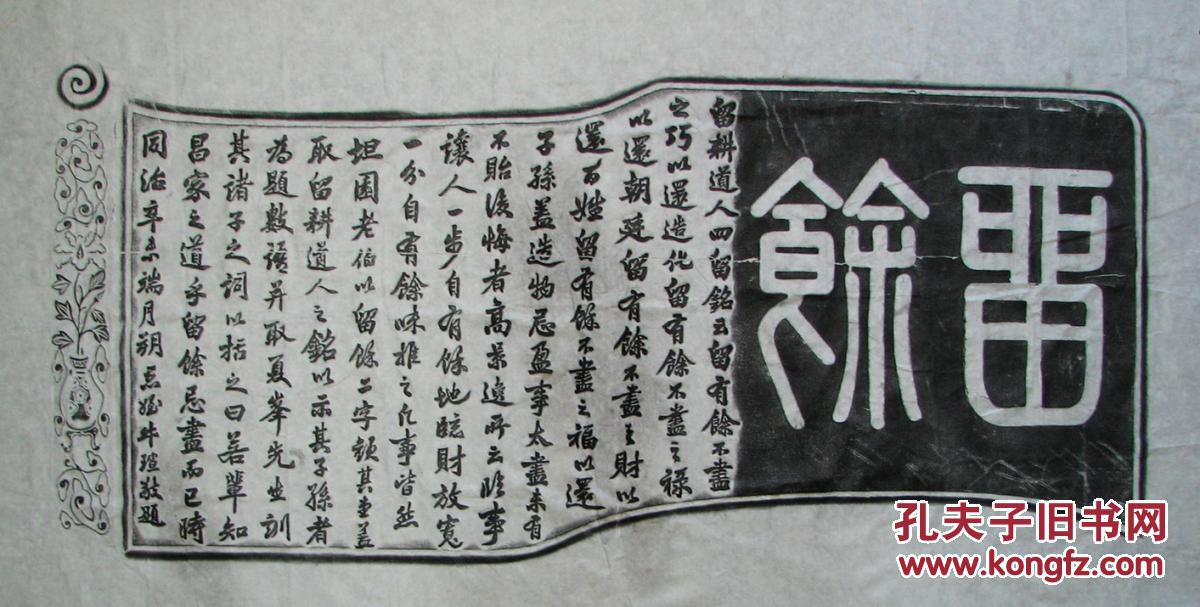 留餘
留耕道人四留銘云留有餘不盡
之巧以還造化留有餘不盡之祿
以還朝廷留有餘不盡之財以
還百姓留有餘不盡之福以還
子孫蓋造物忌盈事太盡未有
不貽後悔者高景逸所云臨事
讓人一步自有餘地臨財放寬
一分自有餘味推之凡事皆然
坦園老伯以留餘二字顏其堂蓋
取留耕道人之銘以示其子孫者
為題數語并取夏峯先生訓
其諸子之詞以括之曰若輩知
昌家之道乎留餘忌盡而已時
同治辛未端月朔 牛瑄敬題
孔夫子旧书网
www.kongfz.com